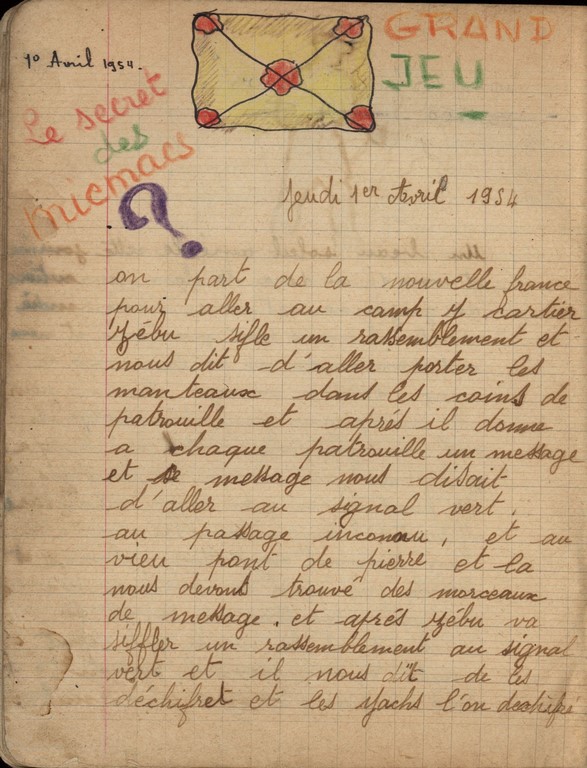 10 Avril 1954.
GRAND
JEU
Le secret
des
micmacs
?
Jeudi 1er Avril 1954
on part de la nouvelle france
pour aller au camp J cartier
zébu sifle un rassemblement et
nous dit d'aller porter les
manteaux dans les coins de
patrouille et aprés il donne
a chaque patrouille un message
et se message nous disait
d'aller au signal vert,
au passage inconnu, et au
vieu pont de pierre et la
nous devons trouvé des morceaux
de message. et aprés zébu va
siffler un rassemblement au signal
vert et il nous dit de les
déchifret et les yachs l'on dechifré